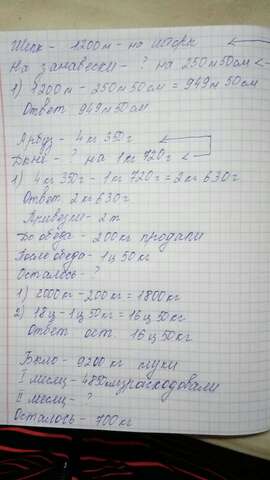 Шёлк - 1200м - на шторы
На занавески - ? на 250м 50см
1) 1200м - 250м 50см = 949м 50см
Ответ 949м 50см
Арбуз - 4кг 350г
Дыня - ? на 1кг 720г
1) 4кг 350г - 1кг 720г = 2кг 630г
Ответ 2кг 630г
Привезли - 2т
До обеда - 200кг продали
После обеда - 1ц 50кг
Осталось - ?
1) 2000кг - 200кг = 1800кг
2) 18ц - 1ц 50кг = 16ц 50кг
Ответ ост. 16ц 50кг
Было - 9200кг муки
I месяц - израсходовали
II месяц - ?
Осталось - 700кг